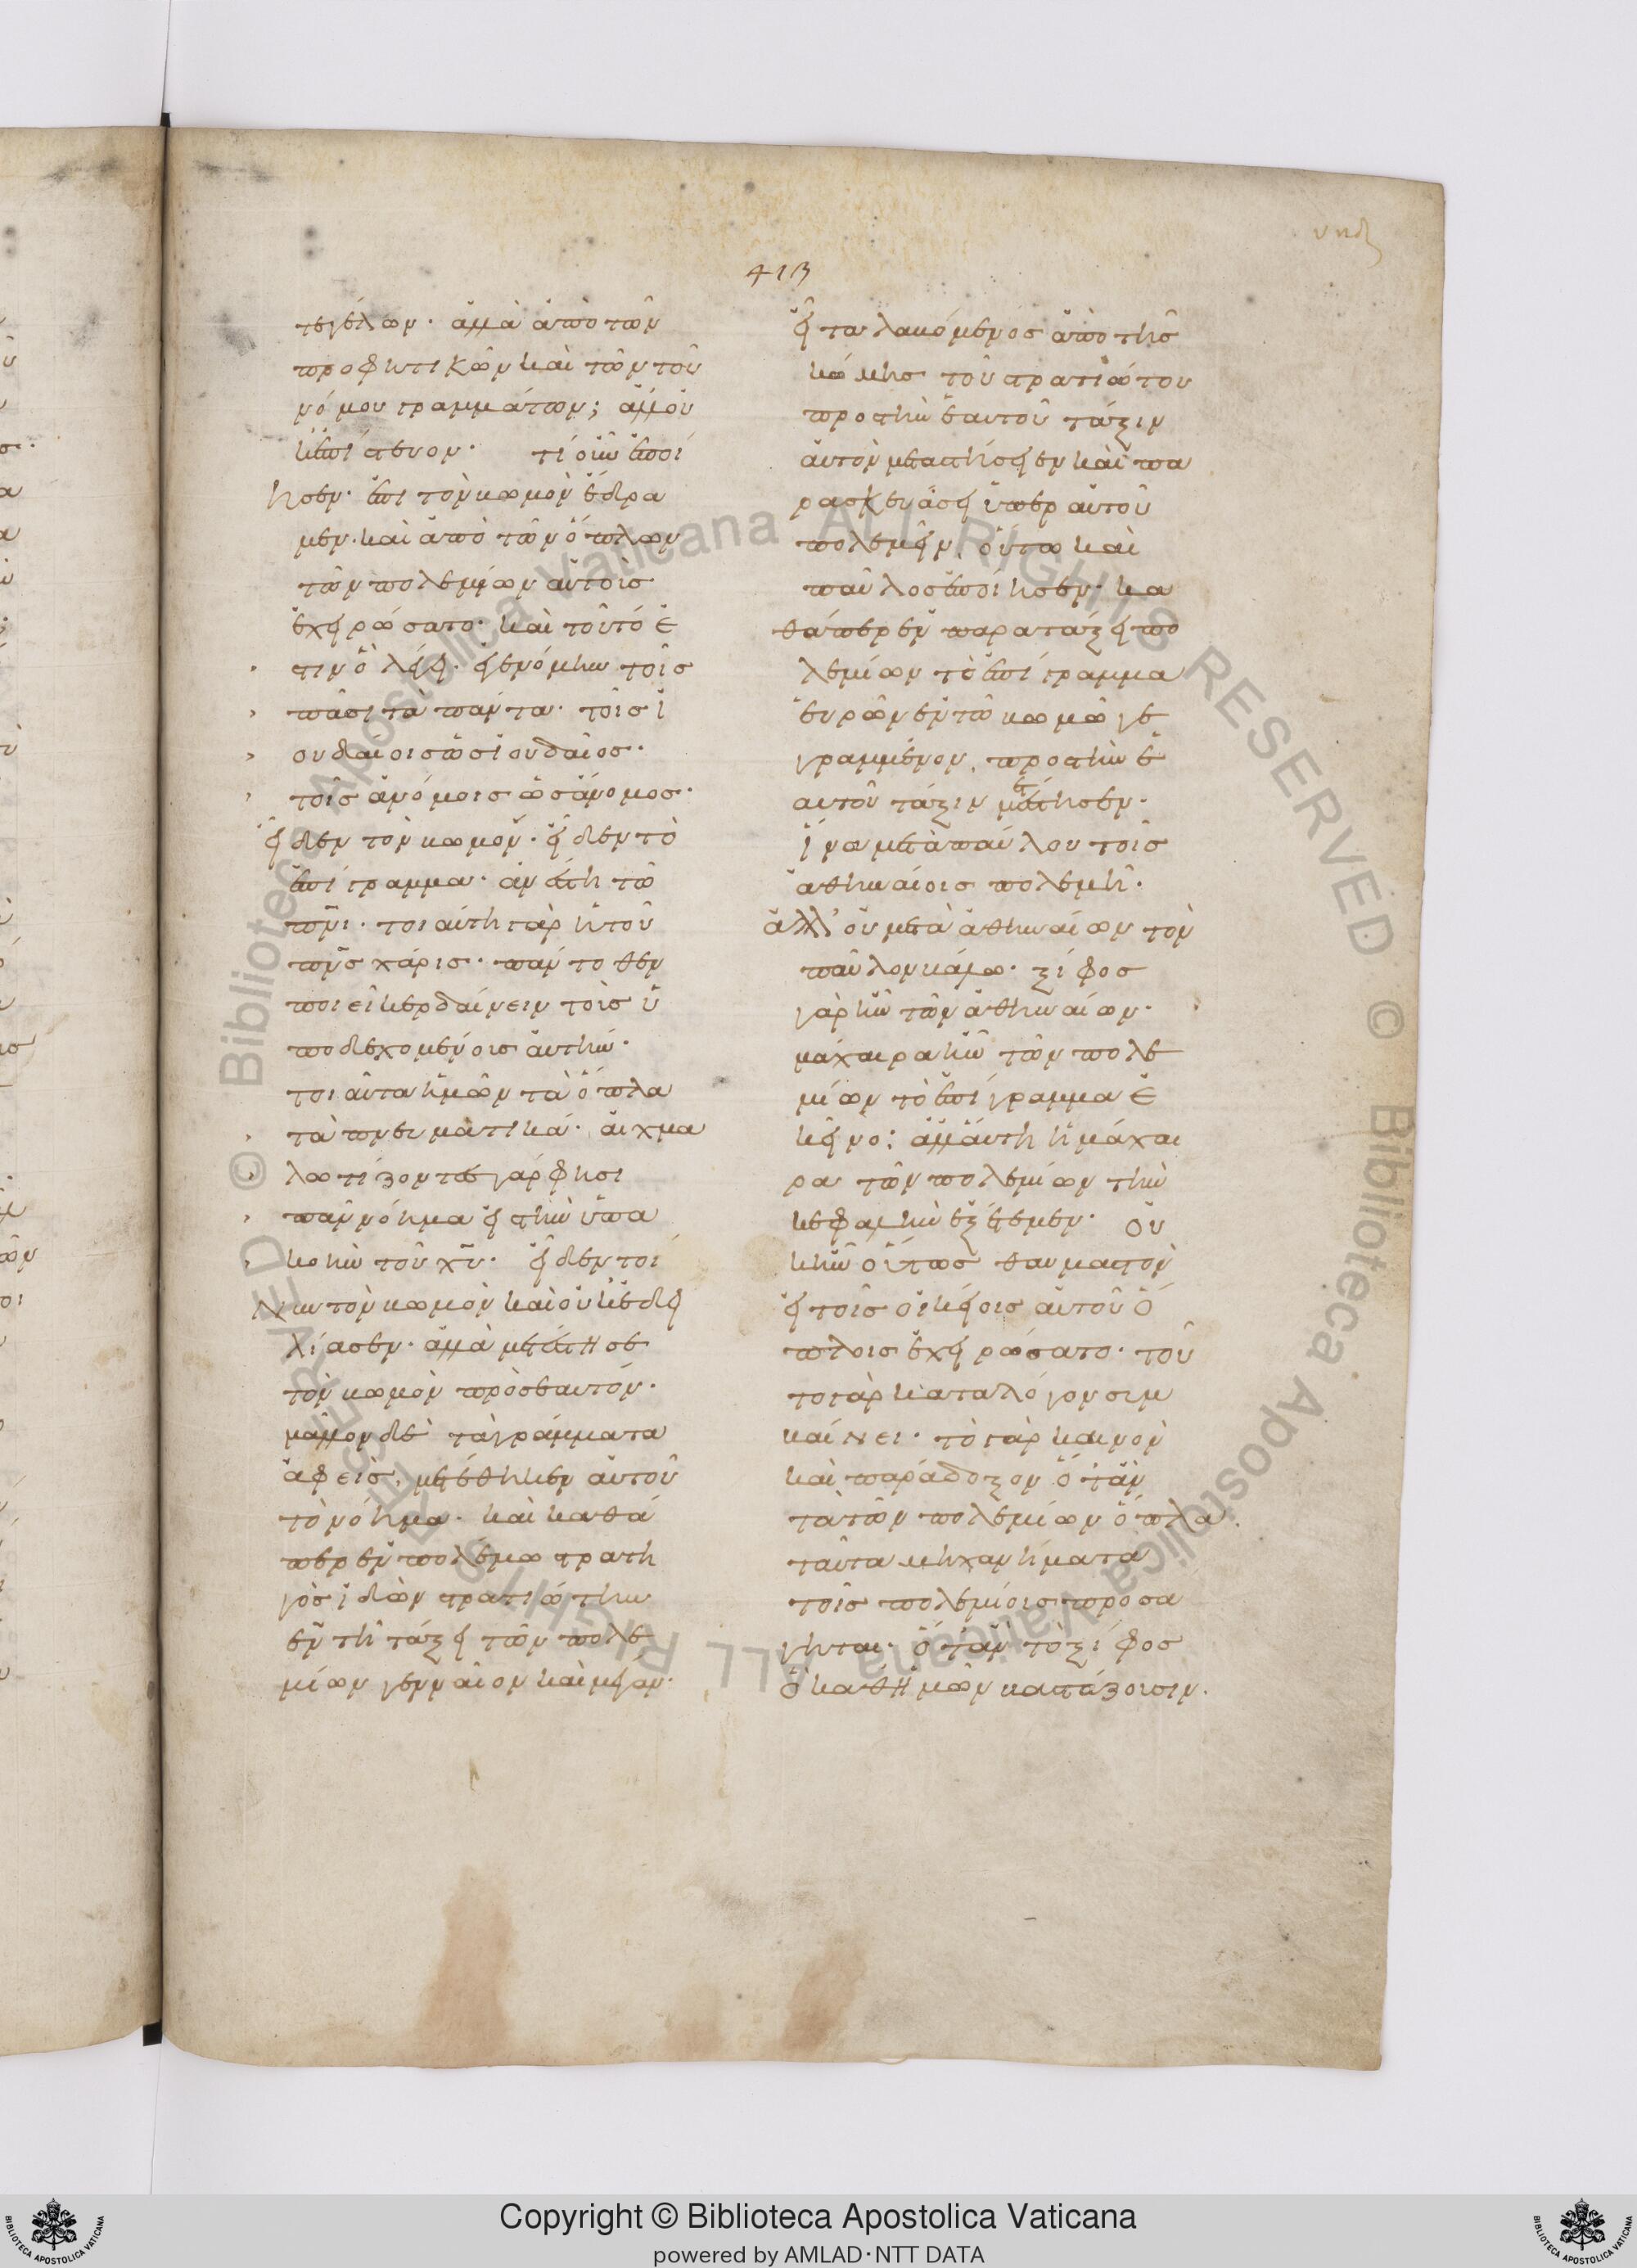 υιδ
413
τεγέλων· ἀλλὰ ἀπὸ τῶν
προφητικῶν καὶ τῶν τοῦ
νόμου γραμμάτων; ἀλλ οὐκ
ἠπίστευον· τί οὖν ἐποί
ησεν· ἐπι τὸν βωμὸν ἔδρα
μεν· καὶ ἀπὸ τῶν ὅπλων
τῶν πολεμίων αὐτοὺς
ἐχειρώσατο· καὶ τοῦτό ἐ
στιν ὃ λέγει· ἐγενόμην τοῖς
πᾶσι τὰ πάντα· τοῖς ἰ
ουδαίοις ὡς ἰουδαῖος·
τοῖς ἀνόμοις ὡς ἄνομος·
εἶδεν τὸν βωμὸν· εἶδεν τὸ
ἐπίγραμμα· ἀνέστη τῶ
πνι· τοιαύτη γὰρ ἡ τοῦ
πνς χάρις· πάντοθεν
ποιεῖ κερδαίνειν τοὺς ὑ
ποδεχομένους αὐτήν·
τοιαῦτα ἡμῶν τὰ ὅπλα
τὰ πνευματικά· αἰχμα
λωτίζοντες γάρ φησι
πᾶν νόημα εἰς τὴν ὑπα
κοὴν τοῦ χυ· εἶδεν τοί
νυν τὸν βωμὸν καὶ οὐκ ἐδει
λίασεν· ἀλλὰ μετέστησε
τὸν βωμὸν πρὸς ἑαυτόν·
μᾶλλον δὲ τὰ γράμματα
ἀφεὶς, μετέθηκεν αὐτοῦ
τὸ νόημα· καὶ καθά
περ ἐν πολέμω στρατη
γὸς ἰδὼν στρατιώτην
ἐν τῆ τάξει τῶν πολε
μίων γενναῖον καὶ μέγαν·
εἶτα λαβόμενος ἀπὸ τῆς
κόμης τοῦ στρατιώτου
προς τὴν ἑαυτοῦ τάξιν
αὐτὸν μεταστήσειεν καὶ πα
ρασκευάσει ὑπὲρ αὐτοῦ
πολεμεῖν, οὕτω καὶ
παῦλος ἐποίησεν· κα
θάπερ ἐν παρατάξει πο
λεμίων τὸ ἐπίγραμμα
εὑρὼν ἐν τῶ βωμῶ γε
γραμμένον, προς τὴν ἑ
αυτοῦ τάξιν μετέστησεν·
ἵνα μετὰ παύλου τοῖς
ἀθηναίοις πολεμῆ·
ἀλλ' οὐ μετὰ ἀθηναίων τὸν
παῦλον βάλλω· ξίφος
γὰρ ἦν τῶν ἀθηναίων·
μάχαιρα ἦν τῶν πολε
μίων τὸ ἐπίγραμμα ἐ
κεῖνο; ἀλλ αὐτὴ ἡ μάχαι
ρα τῶν πολεμίων τὴν
κεφαλὴν ἐξέτεμεν· οὐ
κ ἦν οὕτως θαυμαστὸν
εἰ τοῖς οἰκείοις αὐτοῦ ὅ
πλοις ἐχειρώσατο· τοῦ
το γὰρ κατα λόγον συμ
βαίνει· τὸ γὰρ καινὸν
καὶ παράδοξον ὅταν
τὰ τῶν πολεμίων ὅπλα
ταῦτα μηχανήματα
τοῖς πολεμίοις προσά
γηται· ὅταν τὸ ξίφος
ὃ καθ ἡμῶν βαστάζουσιν·
Copyright © Biblioteca Apostolica Vaticana
powered by AMLAD·NTT DATA